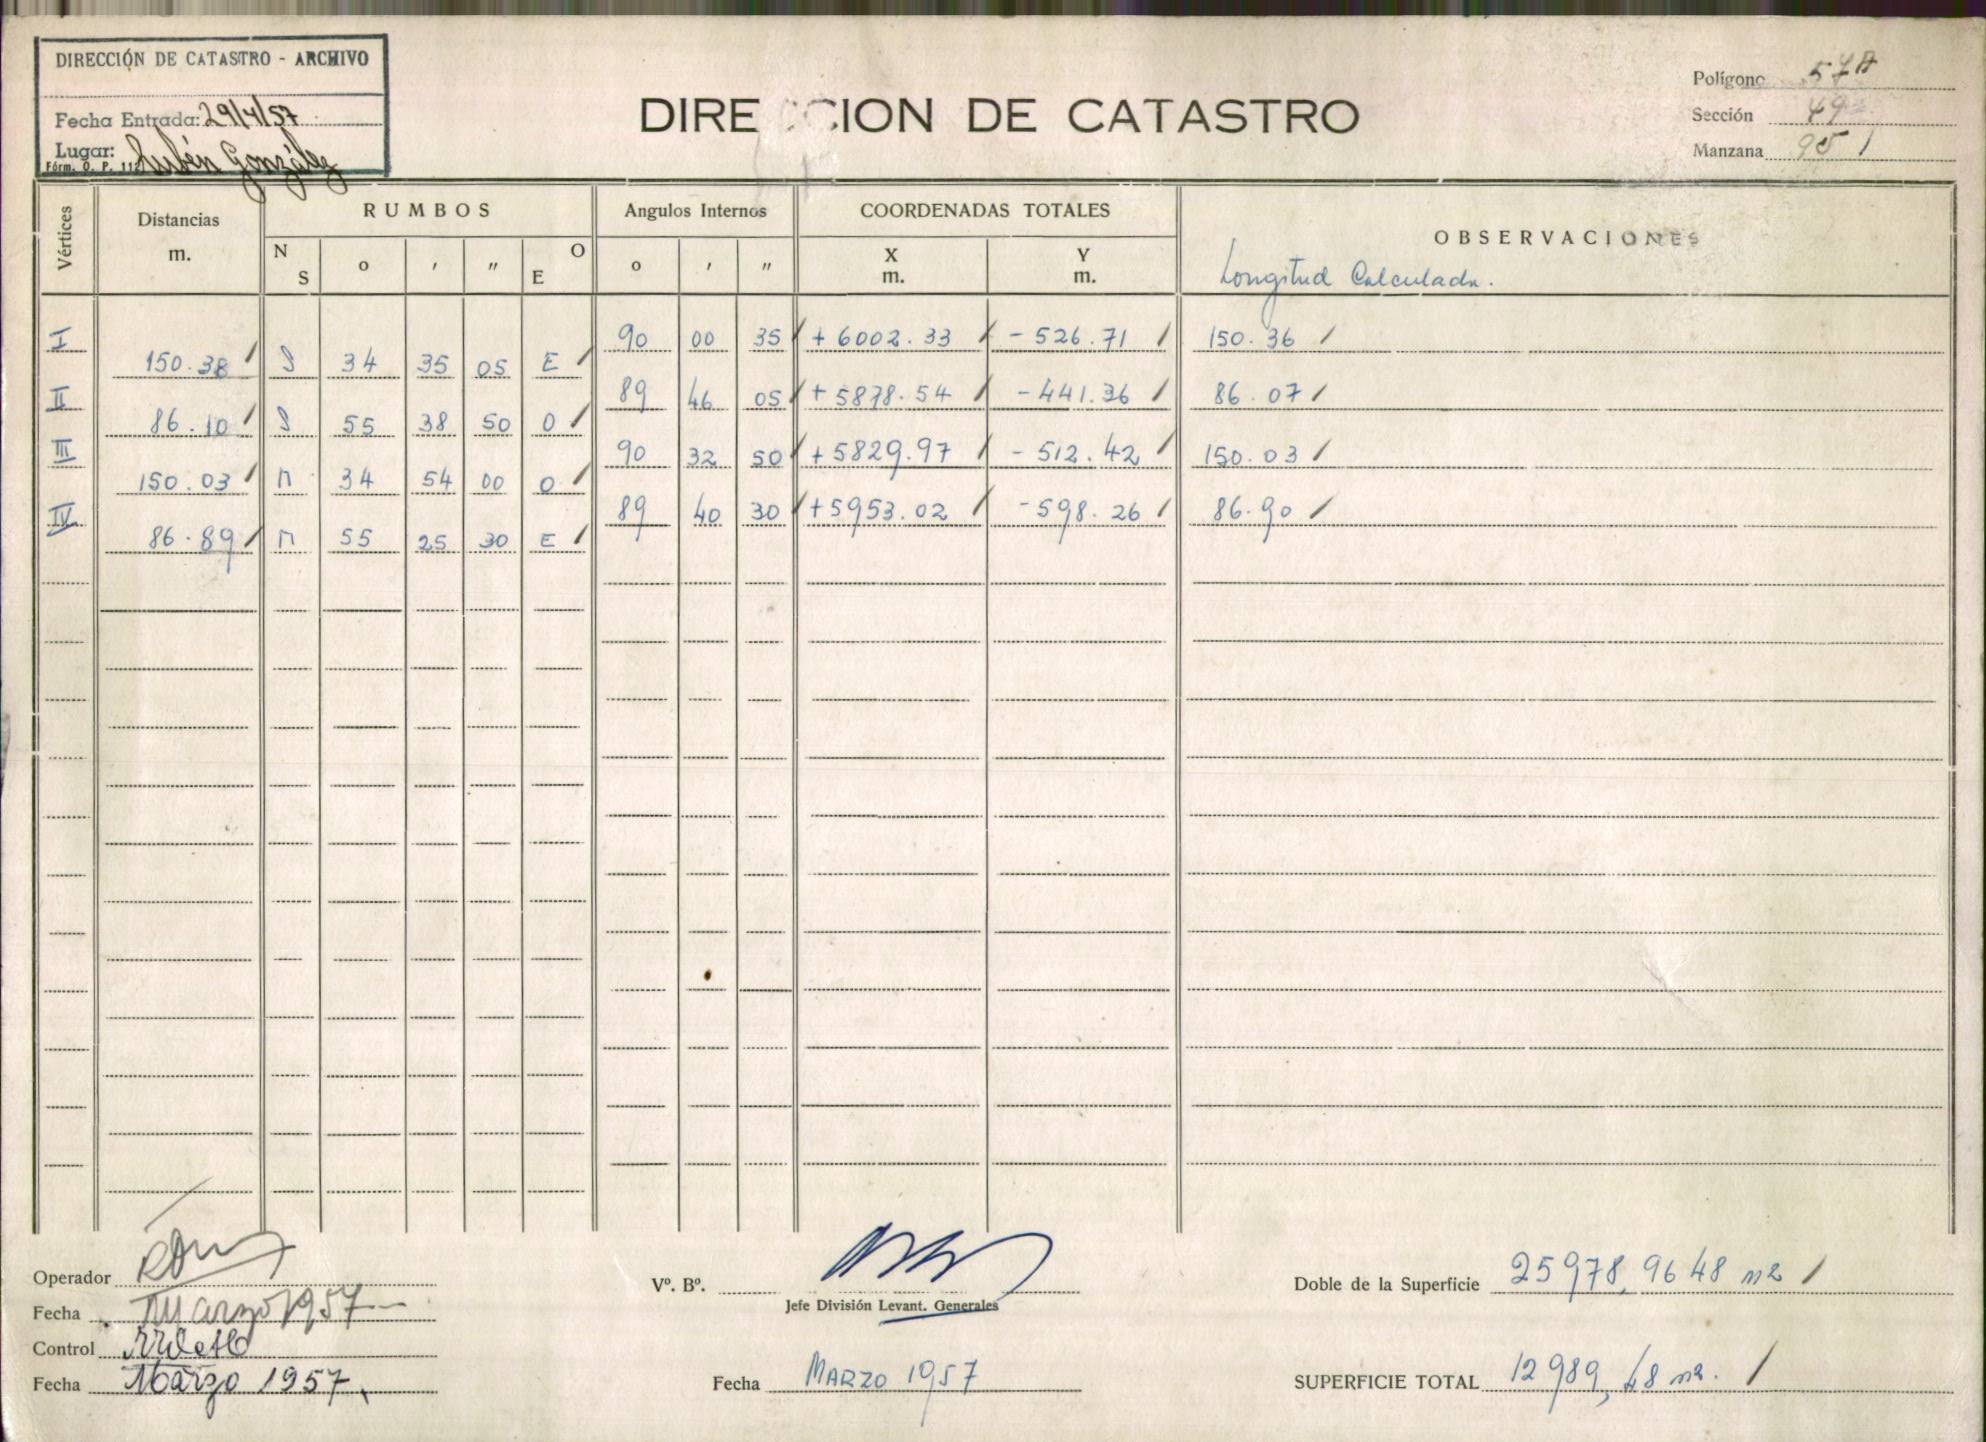 DIRECCIÓN DE CATASTRO - ARCHIVO
Fecha Entrada: 29/4/57
Lugar: Rubén González
Fórm. O. P. 112
DIRECCION DE CATASTRO
Polígono 57A
Sección 49
Manzana 95 /
Vértices
Distancias
m.
RUMBOS
N
S
o
'
"
O
E
Angulos Internos
o
'
"
COORDENADAS TOTALES
X
m.
Y
m.
OBSERVACIONES
Longitud Calculada.
I 90 00 35 / + 6002.33 / - 526.71 / 150.36 /
150.38 / S 34 35 05 E /
II 89 46 05 / + 5878.54 / - 441.36 / 86.07 /
86.10 / S 55 38 50 O /
III 90 32 50 / + 5829.97 / - 512.42 / 150.03 /
150.03 / N 34 54 00 O /
IV 89 40 30 / + 5953.02 / - 598.26 / 86.90 /
86.89 / N 55 25 30 E /
Operador
Fecha Marzo 1957
Control
Fecha Marzo 1957
Vº. Bº.
Jefe División Levant. Generales
Fecha MARZO 1957
Doble de la Superficie 25978,9648 m2 /
SUPERFICIE TOTAL 12989,48 m2. /